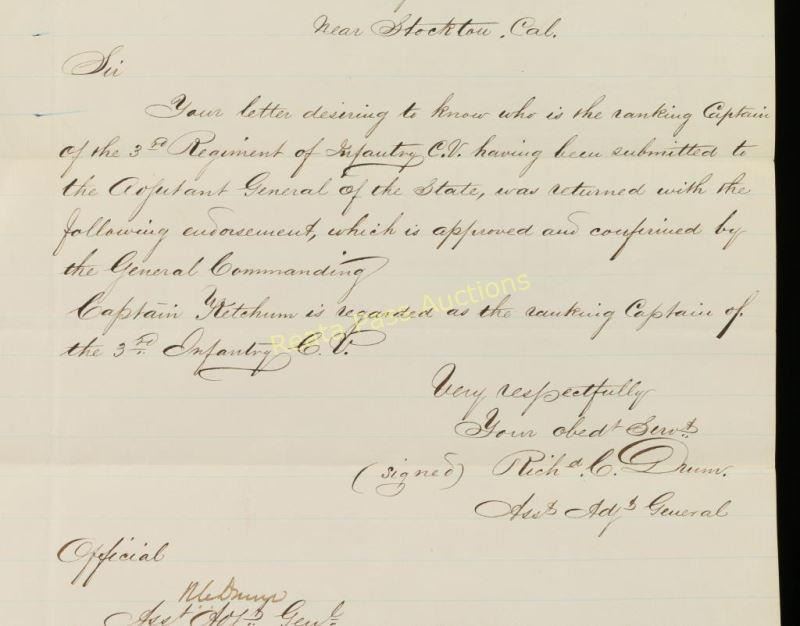 Near Stockton, Cal.
Sir
Your letter desiring to know who is the ranking Captain
of the 3rd Regiment of Infantry C.V. having been submitted to
the Adjutant General of the State, was returned with the
following endorsement, which is approved and confirmed by
the General Commanding
Captain Ketchum is regarded as the ranking Captain of
the 3rd Infantry C.V.
Reata Pass Auctions
Very respectfully
Your obedt Servt
(signed) Richd. C. Drum.
Asst Adjt General
Official
R C Drum
Asst Adjt Genl